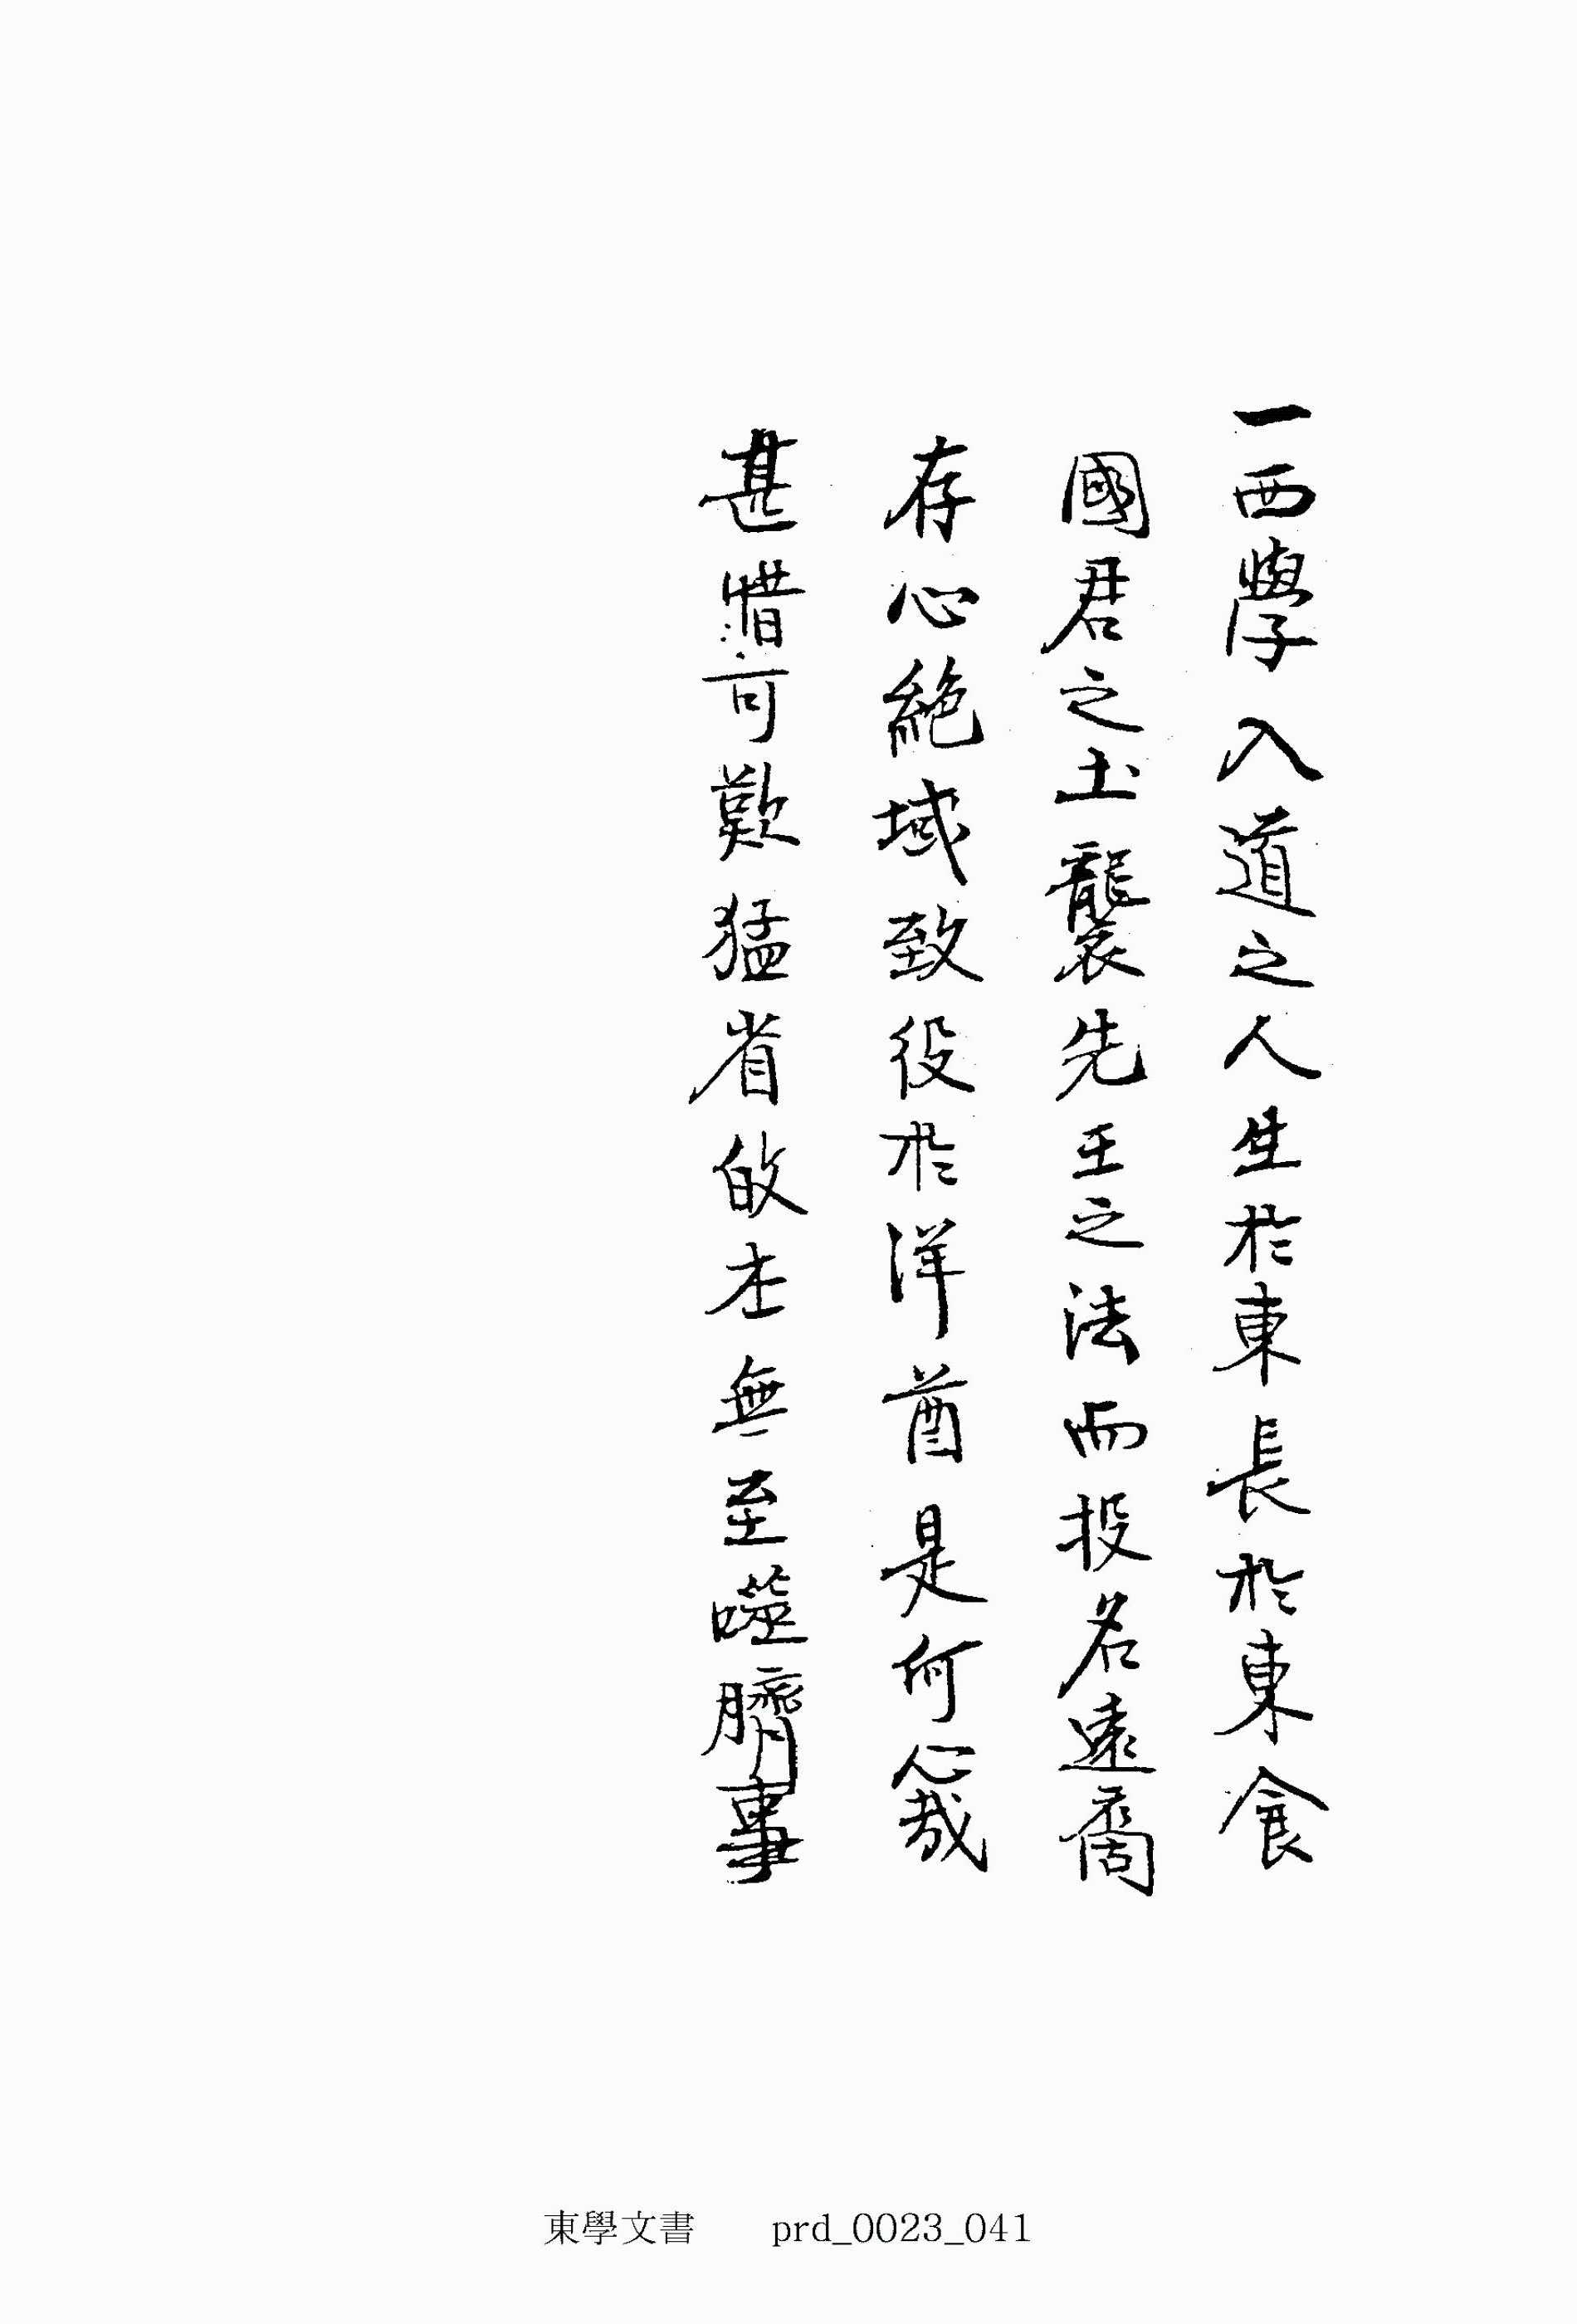 一西學入道之人生於東長於東食
國君之土襲先王之法而投名遠裔
存心絶域致役於洋酋是何心哉
甚惜可歎猛省改本無至噬臍事
東學文書 prd_0023_041